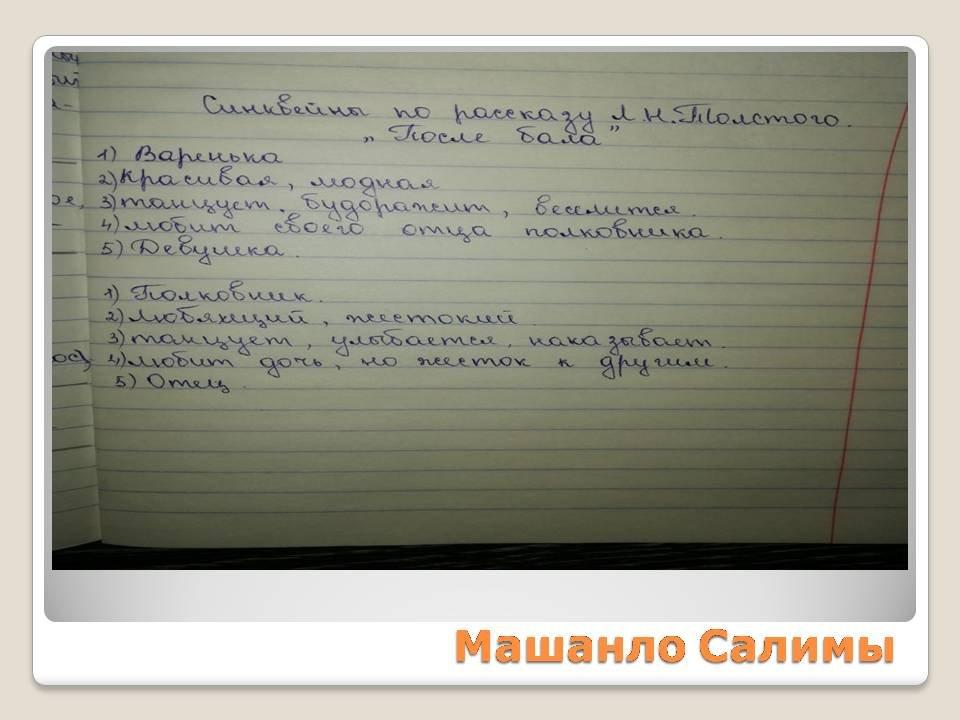 Синквейны по рассказу Л.Н.Толстого.
„После бала”
1) Варенька
2) Красивая, модная
3) танцует, будоражит, веселится.
4) любит своего отца полковника.
5) Девушка.
1) Полковник.
2) Любящий, жестокий.
3) танцует, улыбается, наказывает.
4) любит дочь, но жесток к другим.
5) Отец.
Машанло Салимы